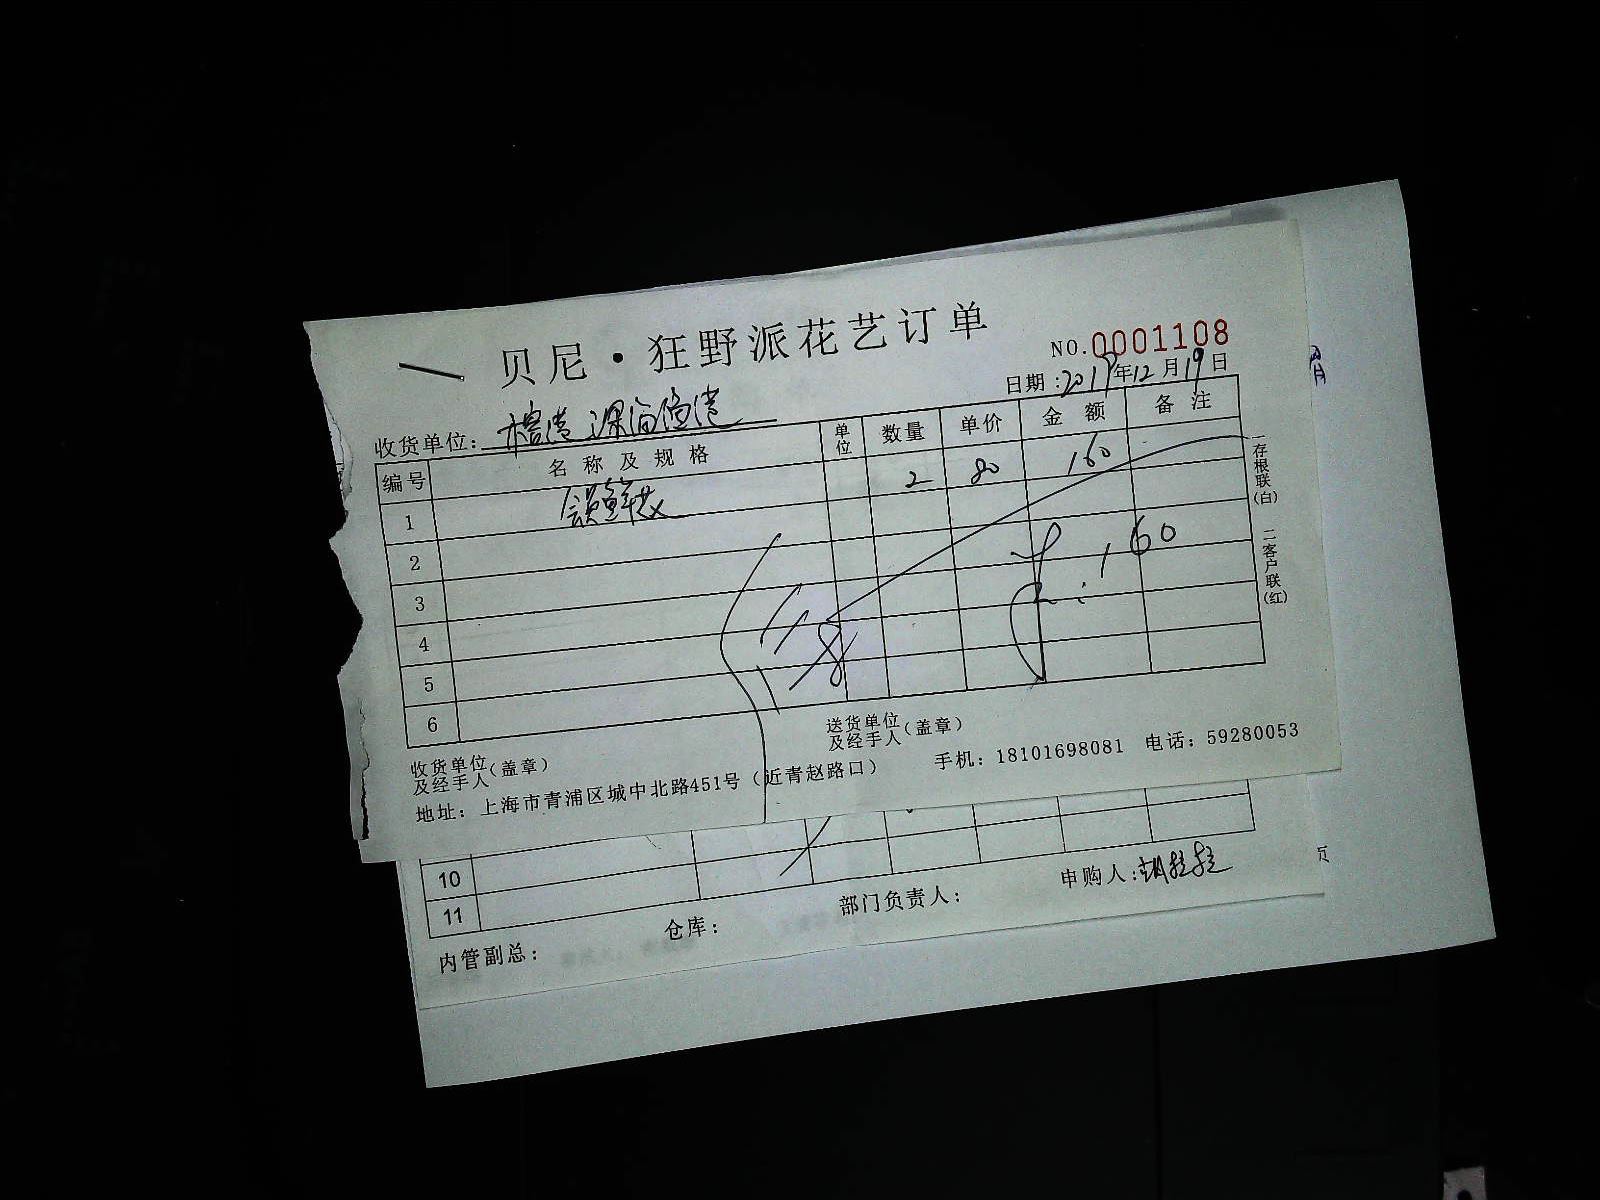 贝尼·狂野派花艺订单
NO.0001108
日期：2017年12月19日
收货单位：
编号 名称及规格 单位 数量 单价 金额 备注
1 会员鲜花 2 80 160
2
3
4
5
6
160
一存根联(白) 二客户联(红)
收货单位及经手人(盖章)
送货单位及经手人(盖章)
地址：上海市青浦区城中北路451号（近青赵路口） 手机：18101698081 电话：59280053
10
11
内管副总： 仓库： 部门负责人： 申购人：
月
页